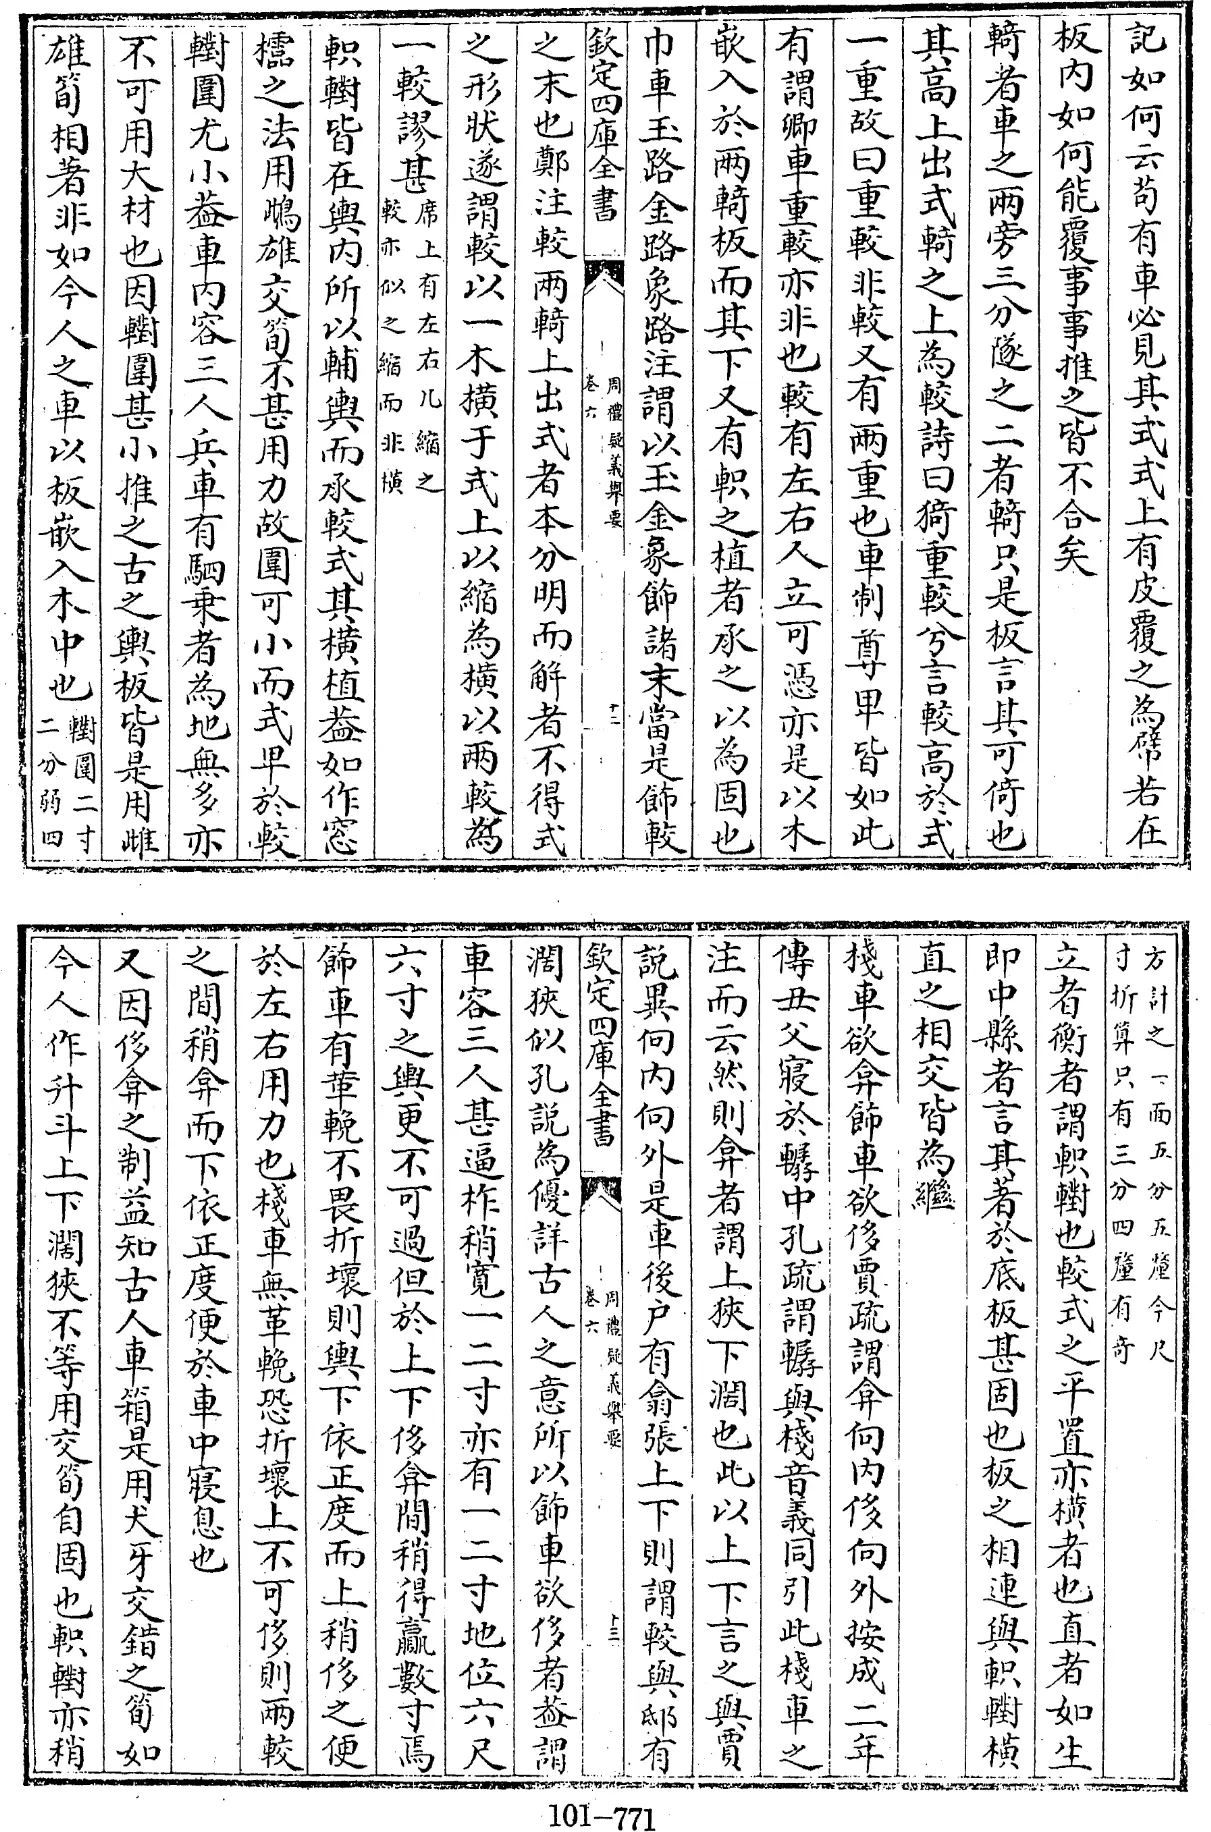 記如何云苟有車必見其式式上有皮覆之為幦若在
板内如何能覆事事推之皆不合矣
輢者車之兩旁三分隧之二者輢只是板言其可倚也
其高上出式輢之上為較詩曰猗重較兮言較高於式
一重故曰重較非較又有兩重也車制尊卑皆如此
有謂卿車重較亦非也較有左右人立可憑亦是以木
嵌入於兩輢板而其下又有軹之植者承之以為固也
巾車玉路金路象路注謂以玉金象飾諸末當是飾較
欽定四庫全書
周禮疑義舉要
卷六
十二
之末也鄭注較兩輢上出式者本分明而解者不得式
之形狀遂謂較以一木橫于式上以縮為橫以兩較為
一較謬甚
席上有左右几縮之
較亦似之縮而非橫
軹轛皆在輿内所以輔輿而承較式其橫植葢如作窓
櫺之法用雌雄交筍不甚用力故圍可小而式卑於較
轛圍尤小葢車内容三人兵車有駟乗者為地無多亦
不可用大材也因轛圍甚小推之古之輿板皆是用雌
雄筍相著非如今人之車以板嵌入木中也
轛圍二寸
二分弱四
方計之一面五分五釐今尺
寸折算只有三分四釐有竒
立者衡者謂軹轛也較式之平置亦橫者也直者如生
即中縣者言其著於底板甚固也板之相連與軹轛橫
直之相交皆為繼
棧車欲弇飾車欲侈賈疏謂弇向内侈向外按成二年
傳丑父寢於轏中孔疏謂轏與棧音義同引此棧車之
注而云然則弇者謂上狹下濶也此以上下言之與賈
說異向内向外是車後户有翕張上下則謂較與邸有
欽定四庫全書
周禮疑義舉要
卷六
十三
濶狹似孔說為優詳古人之意所以飾車欲侈者葢謂
車容三人甚逼柞稍寛一二寸亦有一二寸地位六尺
六寸之輿更不可過但於上下侈弇間稍得贏數寸焉
飾車有革輓不畏折壞則輿下依正度而上稍侈之便
於左右用力也棧車無革輓恐折壞上不可侈則兩較
之間稍弇而下依正度便於車中寢息也
又因侈弇之制益知古人車箱是用犬牙交錯之筍如
今人作升斗上下濶狹不等用交筍自固也軹轛亦稍
101-771